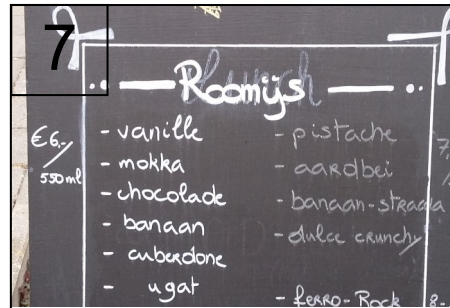 7
Roomijs
€6,-/
550ml
- vanille
- mokka
- chocolade
- banaan
- cuberdone
- ugat
- pistache
- aardbei
- banaan-
- dulce crunchy
- ferro-Rock
7,
8-